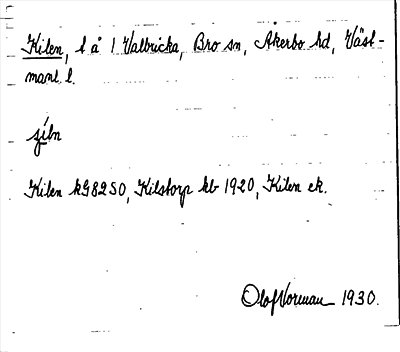 Kilen, t å 1 Valbricka, Bro sn, Åkerbo hd, Väst-
manl. l.
Kilen kG82SO, Kilstorp kb 1920, Kilen ek.
Olof Norman 1930.